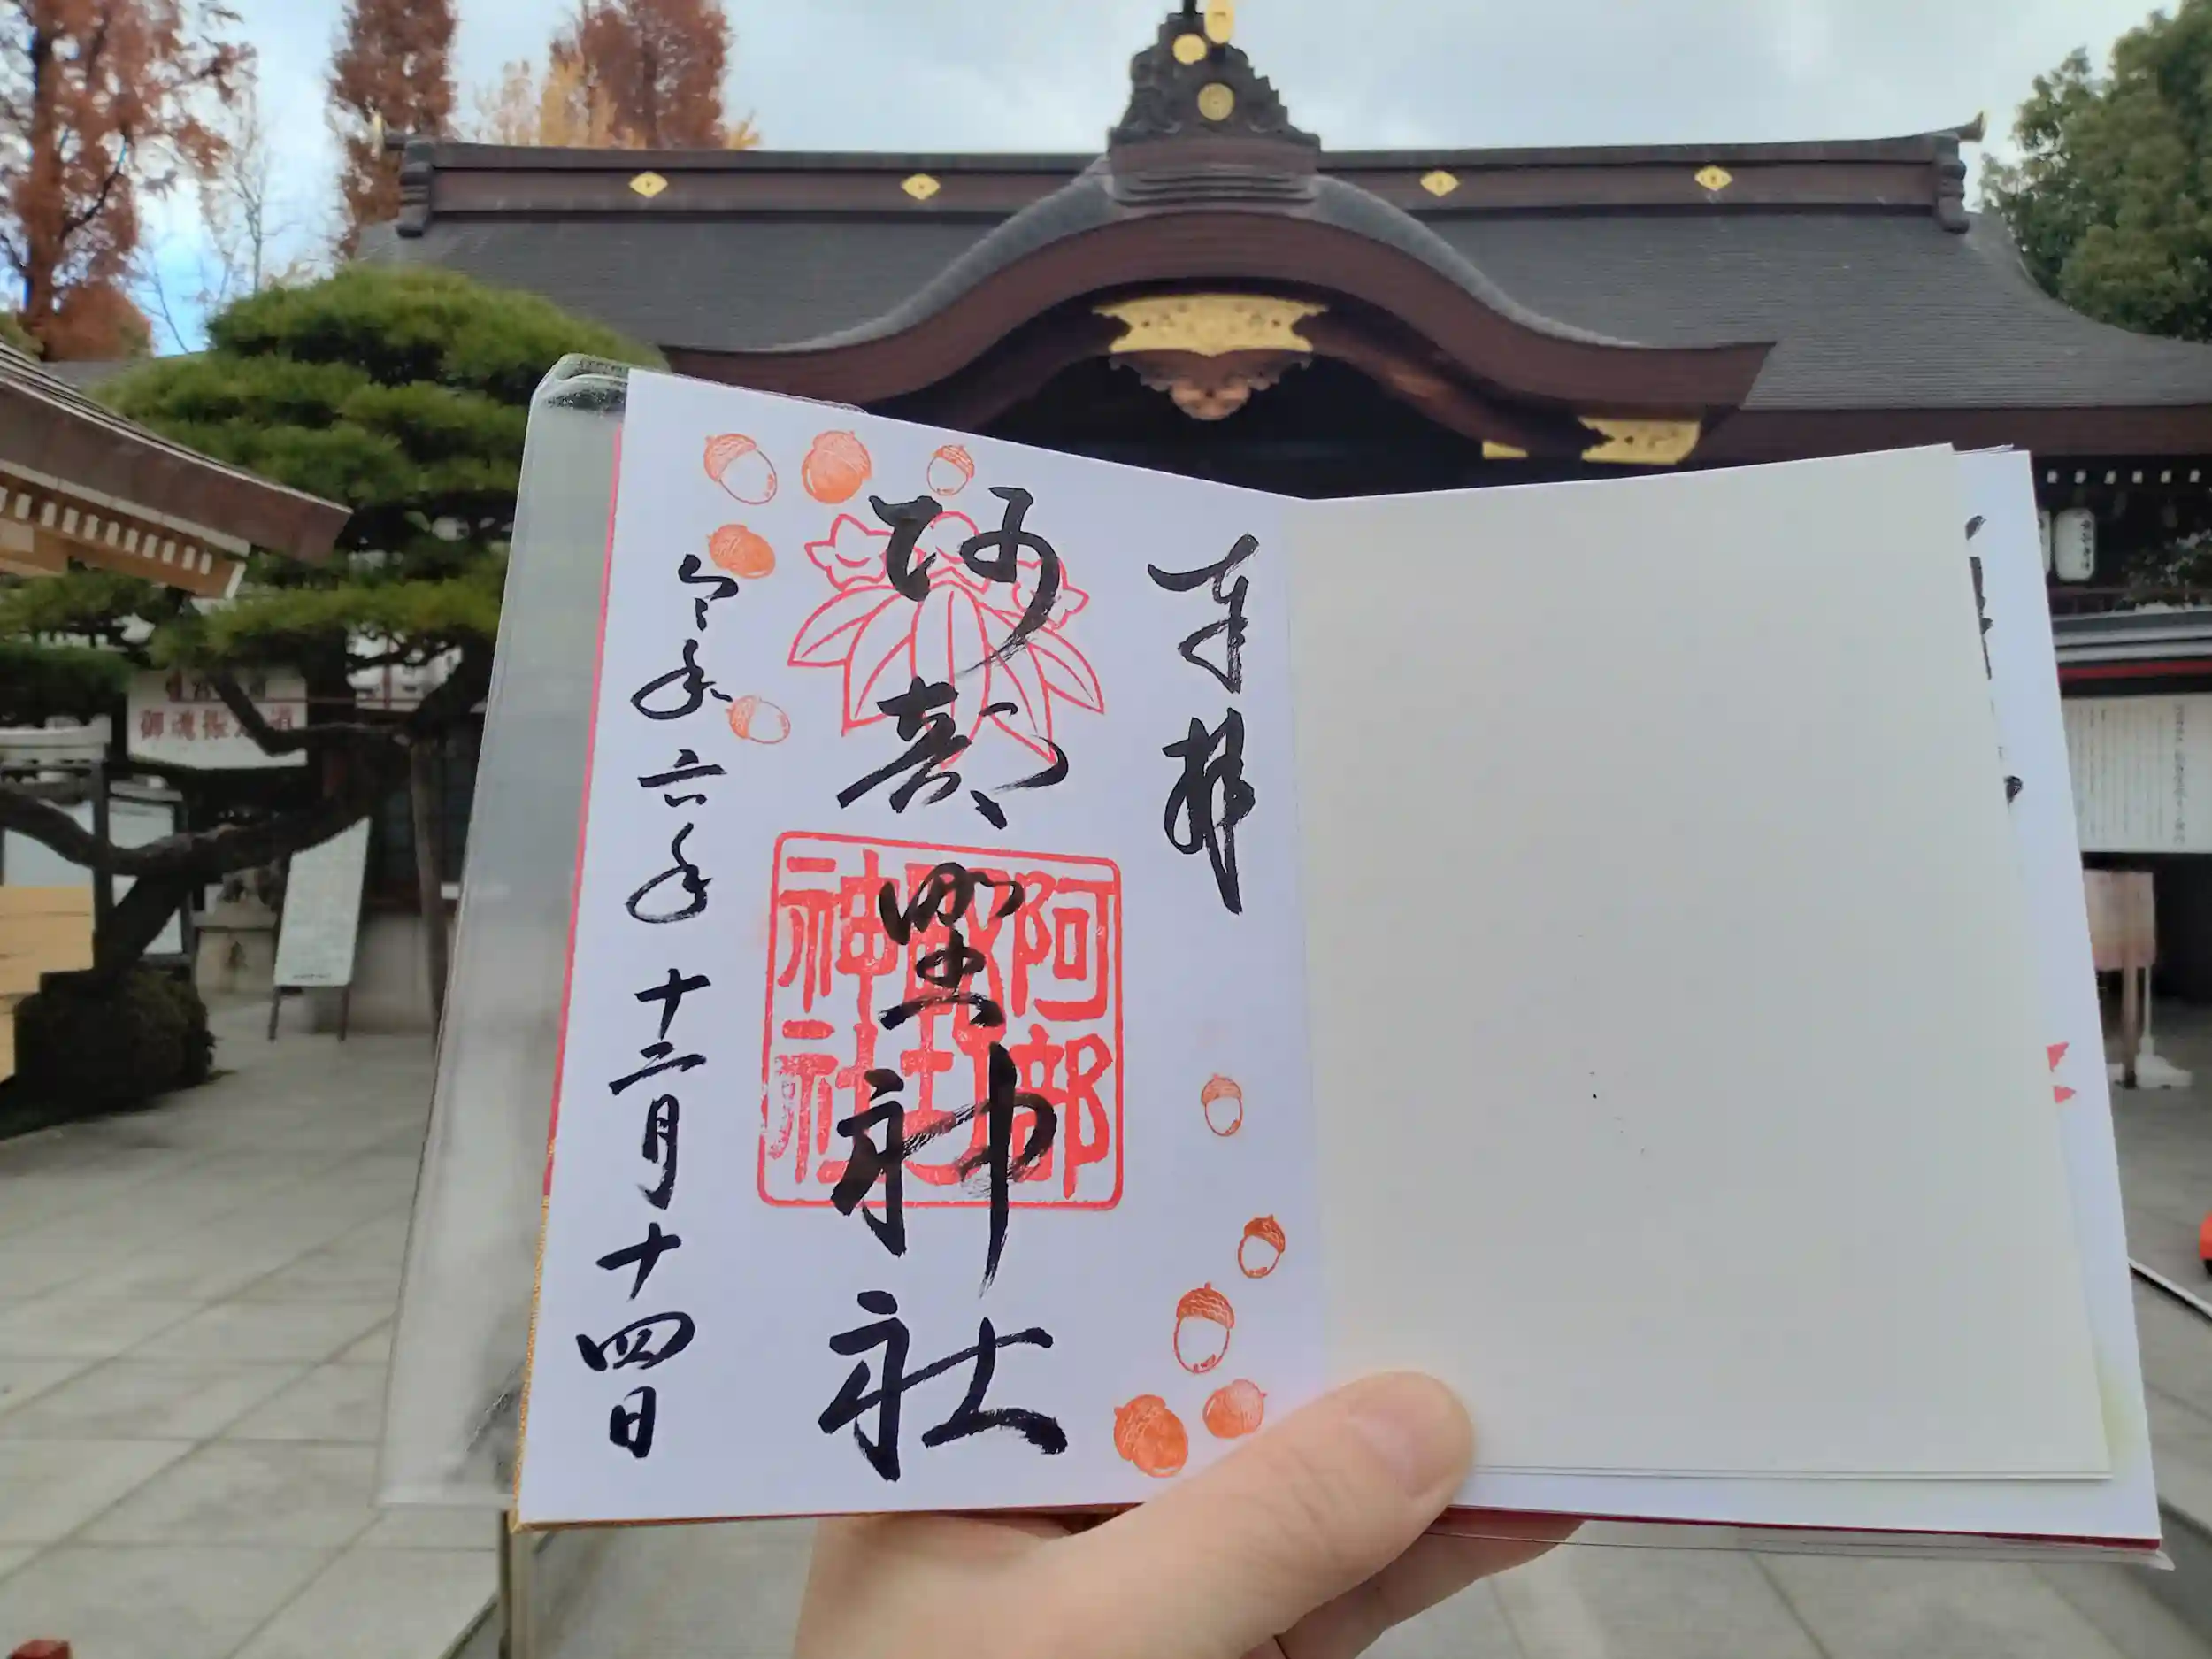 奉拝
阿部野神社
阿部
野
神社
令和六年十二月十四日
御魂振之道